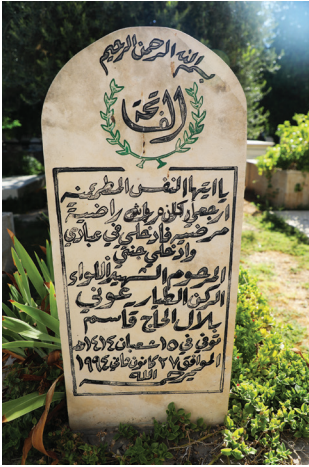 بسم الله الرحمن الرحيم
الفاتحة
يا ايتها النفس المطمئنة
ارجعي الى ربك راضية
مرضية فادخلي في عبادي
وادخلي جنتي
المرحوم الشهيد اللواء
الركن الطيار عوني
بلال الحاج قاسم
توفي في ١٥ شعبان ١٤١٤هـ
الموافق ٢٧ كانون ثاني ١٩٩٤
يرحمه الله